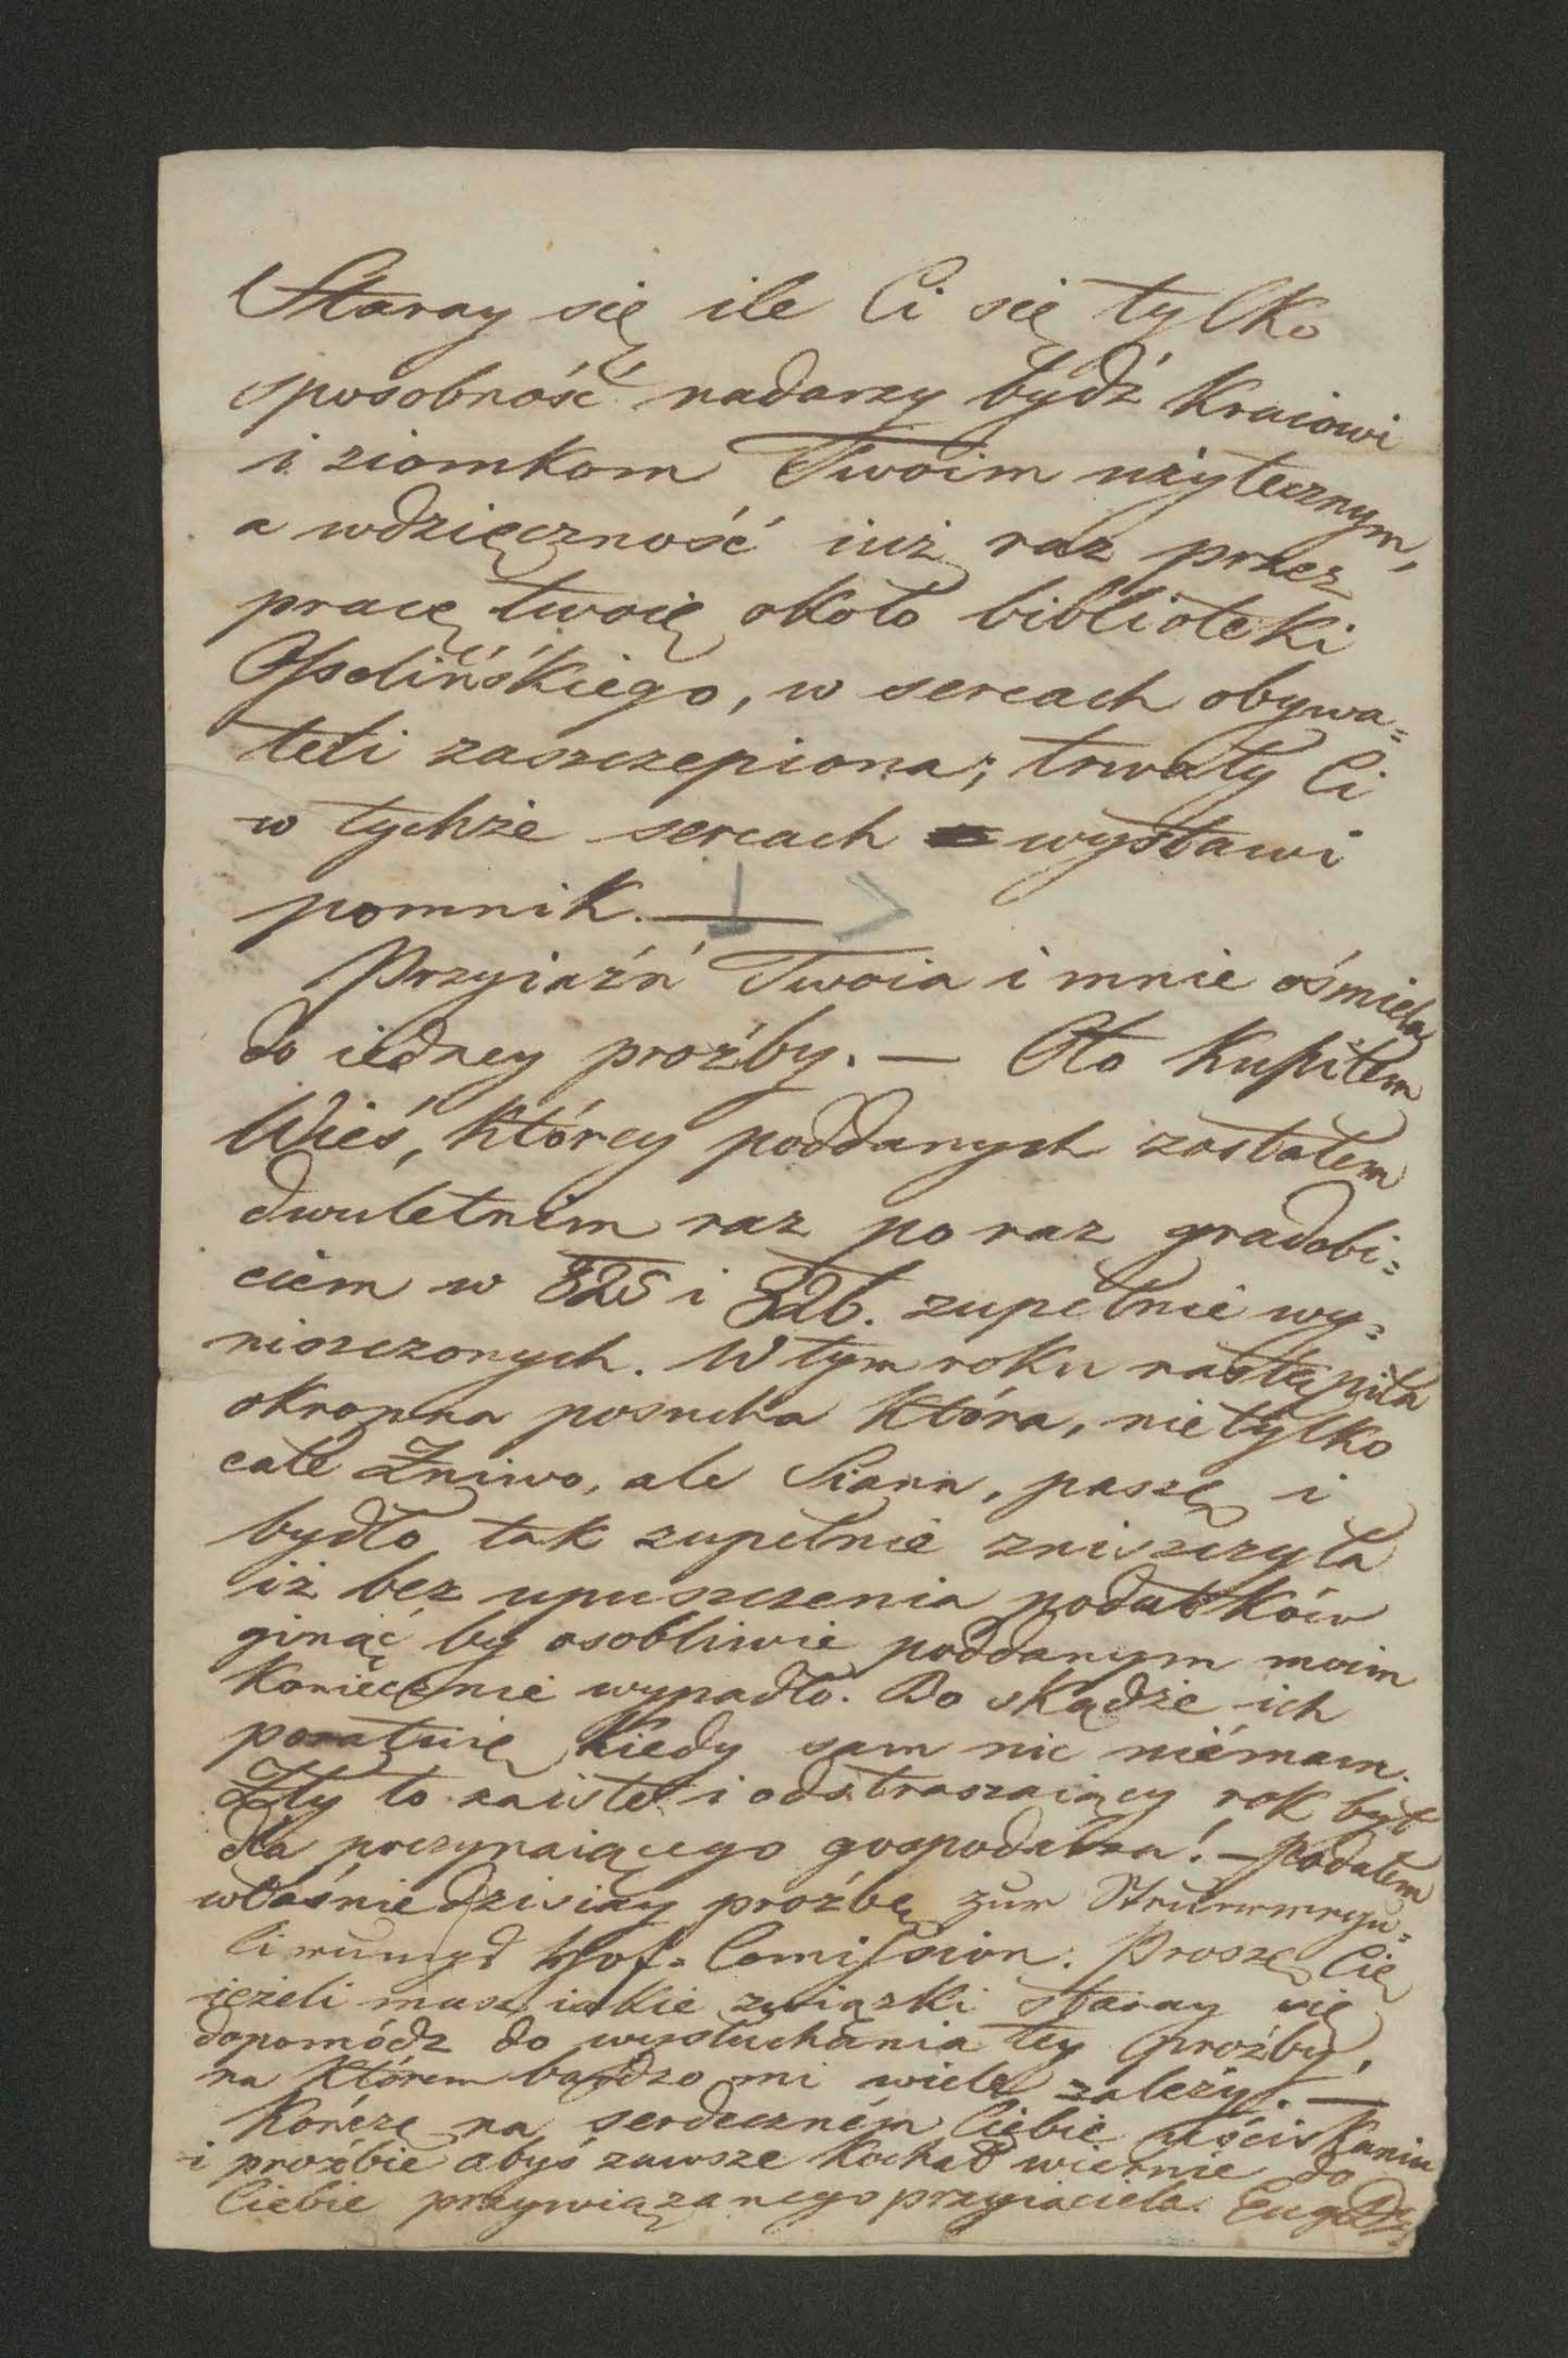 Staray się ile Ci się tylko
sposobność nadarzy bydź Kraiowi
i ziomkom Twoim użytecznym,
a wdzięczność iuż raz przez
pracę twoię około biblioteki
Ossolińśkiego, w sercach obywa=
teli zaszczepiona; trwały Ci
w tychże sercach wystawi
pomnik. —
Przyiaźń Twoia i mnie ośmiela
do iedney proźby. — Oto Kupiłem
Wieś, Którey poddanych zostałem
dwuletnim raz po raz gradobi=
ciem w 825 i 826. zupełnie wy=
niszczonych. W tym roku nastąpiła
okropna posucha Która, nietylko
całe Żniwo, ale Siana, paszę i
bydło tak zupełnie zniszczyła
iż bez upuszczenia podatków
ginąć by osobliwie poddanym moim
Koniecznie wypadło. Bo skądże ich
poratuię Kiedy sam nic niémam.
Zły to zaiste i odstraszaiący rok był
dla poczynaiącego gospodarza! — Podałem
właśnie dzisiay proźbę zur
Hof= Comission. Proszę Cię
ieżeli masz iakie związki staray się
dopomódz do wysłuchania tey proźby,
na Którem bardzo mi wiele zależy. —
Kończę na serdeczném Ciebie uściskaniu
i proźbie abyś zawsze Kochał wiernie do
Ciebie przywiązanego przyiaciela.